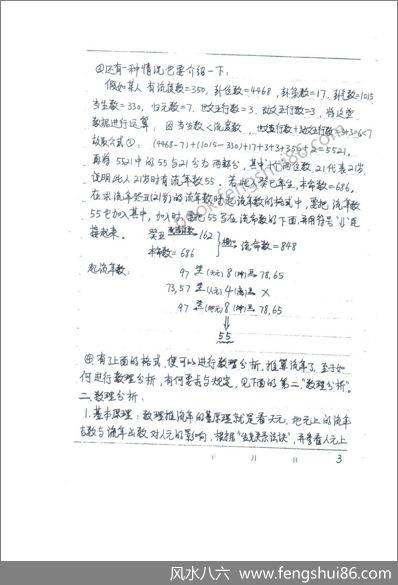 ④还有一种情况也要介绍一下：
假如某人有流度数=350，卦位数=4468，卦策数=17，卦气数=1015
当生数=330，归元数=7，地支五行数=3，动支五行数=3，将这些
数据进行运算：因当生数<流度数，地支行数+地支行数=3+3=6<7
故取公式①：(4468-7)+(1015-330)+17+3+3+356+2=5521。
再将5521中的55与21分为两部分，其中个两位数21代表21岁
说明此人21岁时有流年数55，若此人癸巳年生，本命数=686。
在求流年癸丑(21岁)的流年数时起流年数的格式中，要把流年数
55也加入其中，加入时，要把55写在流命数的下面，并用符号"⇓"连
接起来。癸丑 162
本命数=686 流命数=848
起流年数： 97 (天元) 8 78,65
73,57 (人元) 4 X
97 (地元) 8 78,65
⇓
55
④有了上面的格式，便可以进行数理分析，推算流年了，至于如
何进行数理分析，有何要求与规定，见下面的第二"数理分析"。
二.数理分析：
1.基本原理：数理推流年的基原理就是看天元，地元上的流年
吉数与流年凶数对人元的影响，根据"生克关系法诀"，并参看人元上
年 月 日 3
www.fengshui86.com
风水八六 www.fengshui86.com